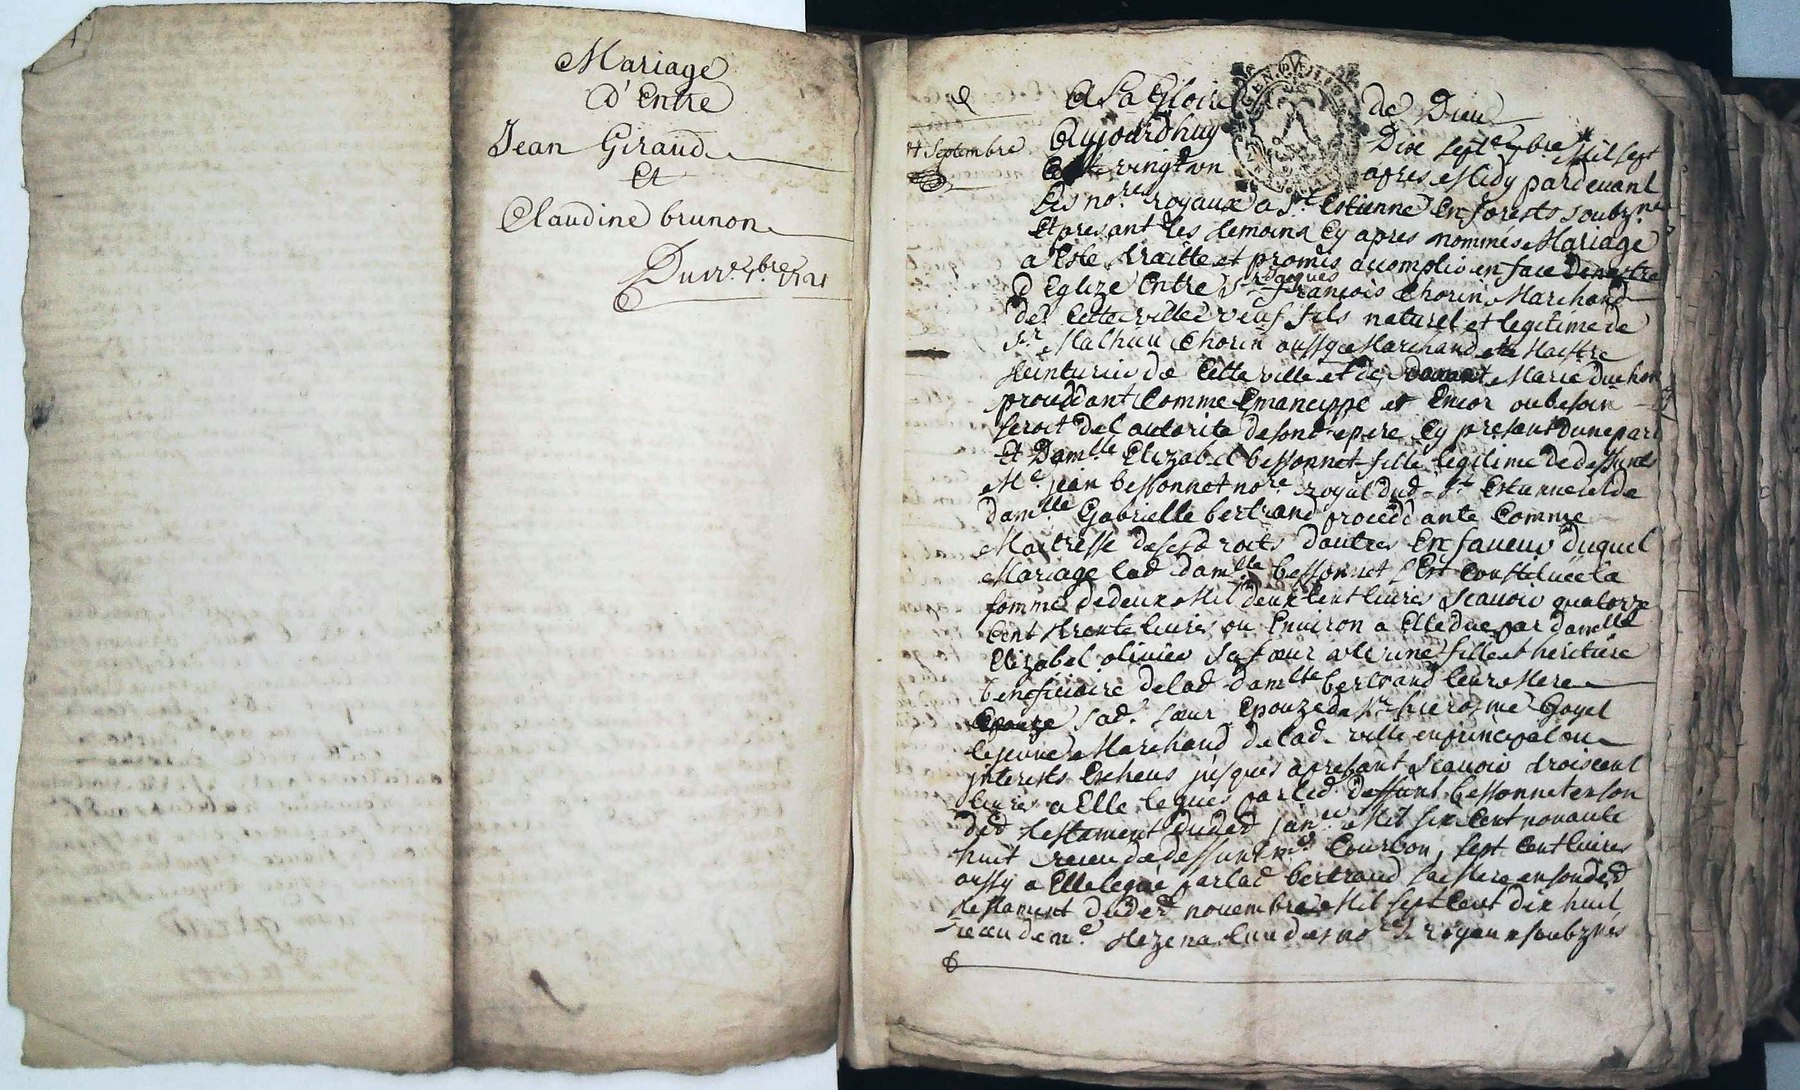 Mariage
d'Entre
Jean Giraud
Et
Claudine brunon
Du 7.bre 1721
A La Gloire de Dieu
17 Septembre
Aujourdhuy Dix sept.e 7bre Mil sept
Cent vingt un apres Midy pardevant
Les no.res royaux a S.t Estienne En forests soubz.nes
Et presant les temoins Cy apres nommés Mariage
a Esté traitté et promis accomplir en face de nostre
d Eglize Entre S.r Jacques François Thorin Marchand
de Cette ville veuf fils naturel et legitime de
S.r Mathieu Thorin aussy Marchand Maistre
teinturier de Cette ville et de Marie duchon
proceddant Comme Emancippé et Encor ou besoin
seroit de l autorité de sond pere Cy present dune part
Et Dam.lle Elizabet bessonnet fille legitime de deffunts
M.e jean bessonnet no.re royal dud S.t Estienne et de
dam.lle Gabrielle bertrand proceddante Comme
Maitresse de ses droits dautre En faveur duquel
Mariage lad dam.lle bessonnet s Est Constituée la
somme de deux Mil deux Cent livres scavoir quatorze
Cent trente livres ou Environ a Elle due par dam.lle
Elizabet olivier sa sœur uterine fille et heritiere
beneficiaire delad dam.lle bertrand leur Mere
sad. sœur Epouze de S.r hierosme Goyet
le jeune Marchand delad ville en principal ou
interests Echeus jusques a presant scavoir troiscent
livres a Elle legués par led deffunt bessonnet en son
testament dud jan.er Mil six Cent nonante
huit receu de deffunt m.e Courbon, sept Cent livres
aussy a Elle legué par lad bertrand sa Mere en sond
testament dud novembre Mil sept Cent dix huit
receu de m.e tezenas l un des no.res royaux soubz.nes